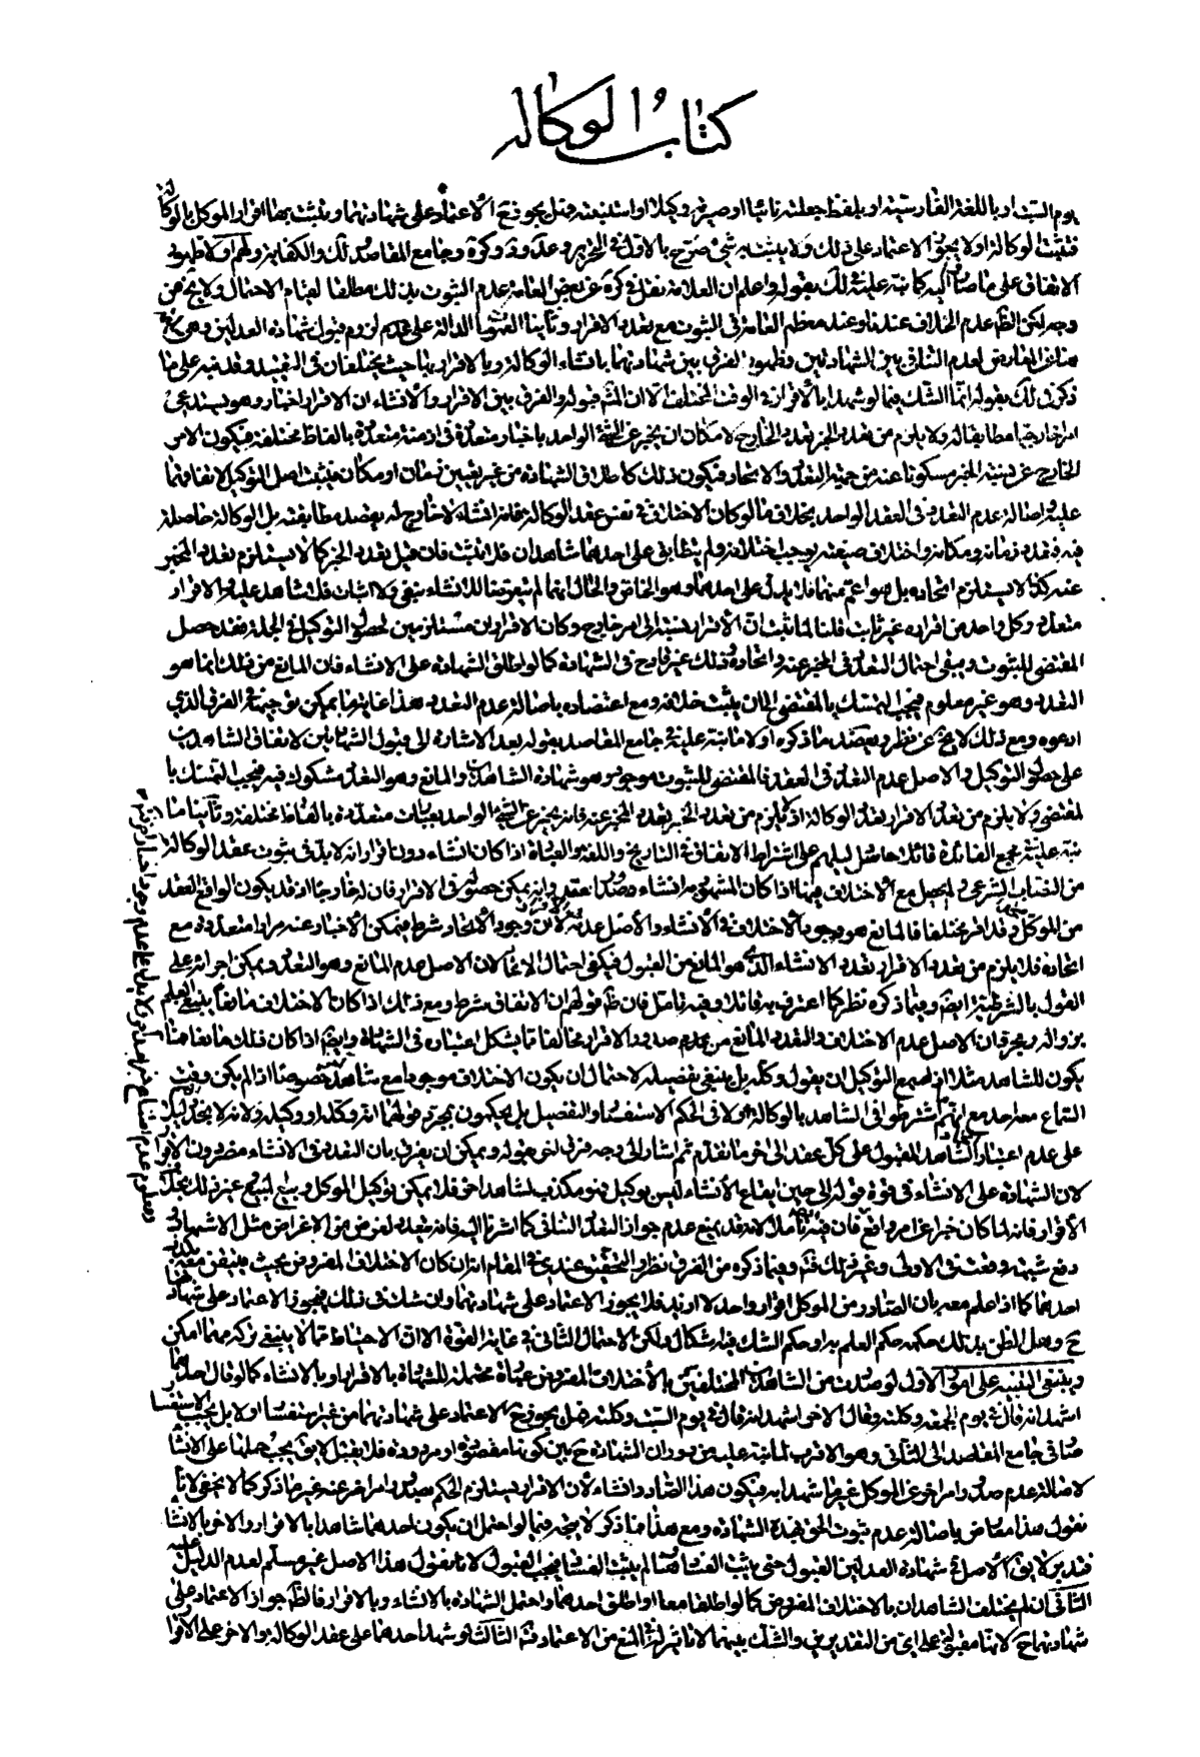 كتاب الوكالة
يوم السبت او باللغة الفارسية او بلفظ جعلته نائبا او صيرته وكيلا او استنبته فهل يجوز ح الاعتماد على شهادتهما ويثبت بها اقرار الموكل بالوكالة
فتثبت الوكالة او لا يجوز الاعتماد على ذلك ولا يثبت به شيئ صرح بالاول في التحرير وعد و كرة وجامع المقاصد لك والكفاية ولهم اولا ظهور
الاتفاق على ما صار اليه كما نبه عليه في لك بقوله واعلم ان العلامة نقل في كرة عن بعض العامة عدم الثبوت بذلك مطلقا لبقاء الاحتمال ولا يخ من
وجه لكن الظ عدم الخلاف عندنا وعند معظم العامة في الثبوت مع تعدد الاقرار وثانيا العموم الدالة على لزوم قبول شهادة العدلين وهي
هنا في الفارض لعدم التنافي بين الشهادتين وظهور الفرق بين شهادتهما بانشاء الوكالة وبالاقرار بها حيث يختلفان في القيد وقد نبه على ما
ذكر في لك بقوله انما الشك فيما لو شهدا بالاقرار في الوقت المختلف لان المشهور قبوله والفرق بين الاقرار والانشاء ان الاقرار اخبار وهو يستدعي
امرا خارجيا مطابقا له ولا يلزم من تعدد الخبر تعدد الخارج لامكان ان يخبر عن الشيئ الواحد باخبار متعددة في ازمنة متعددة بالفاظ مختلفة فيكون الامر
الخارج عن نسبة الخبر مسكوتا عنه من جهة التعدد والاتحاد فيكون ذلك كاطلاق الشهادة من غير تعيين زمان او مكان فيثبت اصل التوكيل لاتفاقهما
عليه واصالة عدم التعدد في العقد الواحد بخلاف ما لو كان الاختلاف في نفس عقد الوكالة فانه انشاء لا خارج له يقصد مطابقته بل الوكالة حاصلة
فيه فتعدد زمانه ومكانه واختلاف صيغته يوجب اختلافه ولم يتطابق على احدهما شاهدان فلا يثبت فان قيل تعدد الخبر كما لا يستلزم تعدد المخبر
عنه كذا لا يستلزم اتحاده بل هو اعم منهما فلا يدل على احدهما وهو الخاص والحال انهما لم يتعرضا للانشاء بنفي ولا اثبات فلا شاهد عليه والاقرار
متعدد وكل واحد من افراده غير ثابت قلنا لما ثبت ان الاقرار نسبة الى امر خارج وكان الاقرارين مستلزمين لحصول التوكيل في الجملة فقد حصل
المقتضي للثبوت ويبقى احتمال التعدد في المخبر عنه واتحاده وذلك غير قادح في الشهادة كما لو اطلق الشهادة على الانشاء فان المانع من ذلك انما هو
التعدد وهو غير معلوم فيجب التمسك بالمقتضي الى ان يثبت خلافه ومع اعتضاده باصالة عدم التعدد هذا غاية ما يمكن توجيه الفرق الذي
ادعوه ومع ذلك لا يخ عن نظر ويعضد ما ذكره اولا ما نبه عليه في جامع المقاصد بقوله بعد الاشارة الى قبول الشهادتين لاتفاق الشاهدين
على حصول التوكيل والاصل عدم التعدد في العقد فالمقتضي للثبوت موجود وهو شهادة الشاهدين والمانع وهو التعدد مشكوك فيه فيجب التمسك با
لمقتضي ولا يلزم من تعدد الاقرار تعدد الوكالة اذ لا يلزم من تعدد الخبر تعدد المخبر عنه فانه يخبر عن الشيئ الواحد بعبارات متعددة بالفاظ مختلفة وثانيا ما
نبه عليه في مجمع الفائدة قائلا حاصل دليلهم على اشتراط الاتفاق في التاريخ واللغة والعبارة اذا كان انشاء دون اقرار انه لا بد في ثبوت عقد الوكالة
من النصاب الشرعي ولم يحصل مع الاختلاف فيها اذا كان المشهود به انشاء وصدور عقد وانه يمكن حصوله في الاقرار فان له خارجا اذ قد يكون الواقع العقد
من الموكل وقد اقر مختلفا فالمانع هو وجود الاختلاف في الانشاء والاصل عدمه لان وجود الاتحاد شرط فيمكن الاخبار عنه مرارا متعددة مع
اتحاده فلا يلزم من تعدد الاقرار تعدد الانشاء الذي هو المانع من القبول فيكفي احتمال الاتحاد لان الاصل عدم المانع وهو التعدد ويمكن اجرائه على
القول بالشرطية ايضا وفيما ذكره نظر كما اعترف به قائلا وفيه تأمل فان ظ قولهم ان الاتفاق شرط ومع ذلك اذا كان الاختلاف مانعا ينبغي العلم
بزواله وبمجرد ان الاصل عدم الاختلاف والتعدد المانع من عدم صدور الاقرار مخالفا مما يشكل اعتباره في الشهادة وايضا اذا كان ذلك مانعا فما
يكون للشاهد مثلا اذا سمع التوكيل ان يقول وكله بل ينبغي تفصيله لاحتمال ان يكون الاختلاف موجودا مع شاهد خصوصا اذا لم يكن وقت
السماع معه احد مع انهم لم يشترطوا في الشاهد بالوكالة ولا في الحكم الاستفسار والتفصيل بل يحكمون بمجرد قولهما انه وكله او وكيله ولانه لا يخ
على عدم اعتبار الشاهد للقبول على كل عقد الى اخر ما تقدم ثم اشار الى وجه فرق اخر بقوله ويمكن ان يفرق بان التعدد في الانشاء مضر دون الاقرار
لان الشهادة على الانشاء في قوة قوله الى حين ايقاع الانشاء ليس بوكيل فهو مكذب لشاهد اخر فلا يمكن توكيل الموكل وبيع المبيع غيره لذلك بخلاف
الاقرار فانه لما كان خبرا عن امر واقع فان فيه تأملا لانه قد يمنع عدم جواز التعدد التنافي كما اشرنا اليه فانه يتعدد لغرض من الاغراض مثل الاشهاد
دفع شبهة وقعت في الاولى وغير ذلك فتم وفيما ذكره من الفرق نظر والتحقيق عندي في المقام انه ان كان الاختلاف المفروض بحيث يتيقن معه
احدهما كما اذا علم معه بان الصادر من الموكل اقرار واحد لا ازيد فلا يجوز الاعتماد على شهادتهما وان شك في ذلك فيجوز الاعتماد على شهاد
ح وهل الظن بذلك حكمه حكم العلم به او حكم الشك فيه اشكال ولكن الاحتمال الثاني في غاية القوة الا ان الاحتياط مما لا ينبغي تركه مهما امكن
وينبغي التنبيه على امور الاول لو صدرت من الشاهدين المختلفين بالاختلاف المفروض عبارة محتملة للشهادة بالاقرار وبالانشاء كما لو قال احدهما
اشهد انه قال في يوم الجمعة وكلته وقال الاخر اشهد انه قال في يوم السبت وكلته فهل يجوز ح الاعتماد على شهادتهما من غير استفسار او لا بل يجب الاستفسا
صار في جامع المقاصد الى الثاني وهو الاقرب لما نبه عليه من دوران الشهادة ح بين كونها مقبولة او مردودة فلا يقبل لا يق يجب حملها على الانشا
لاصالة عدم صدور امر اخر عن الموكل غير ما شهدا به فيكون هذا الصادر انشاء لان الاقرار يستلزم الحكم بصدور امر اخر عنه غير ما ذكر كما لا يخفى لانا
نقول هذا معارض باصالة عدم ثبوت الحق بهذه الشهادة ومع هذا فما ذكر لا يتجه فيما لو احتمل ان يكون احدهما شاهدا بالاقرار والاخر بالانشا
فتدبر لا يق الاصل في شهادة العدلين القبول حتى يثبت الفساد فما لم يثبت الفساد يجب القبول لانا نقول هذا الاصل غير مسلم لعدم الدليل عليه
الثاني اذا لم يختلف الشاهدان بالاختلاف المفروض كما لو اطلقا معا او اطلق احدهما واحتمل الشهادة بالانشاء وبالاقرار فالظ جواز الاعتماد على
شهادتهما ح لانها مقبولة على اي من التقديرين والشك بينهما لا تاثير له في المنع من الاعتماد فتم الثالث لو شهد احدهما على عقد الوكالة والاخر على الاقرا